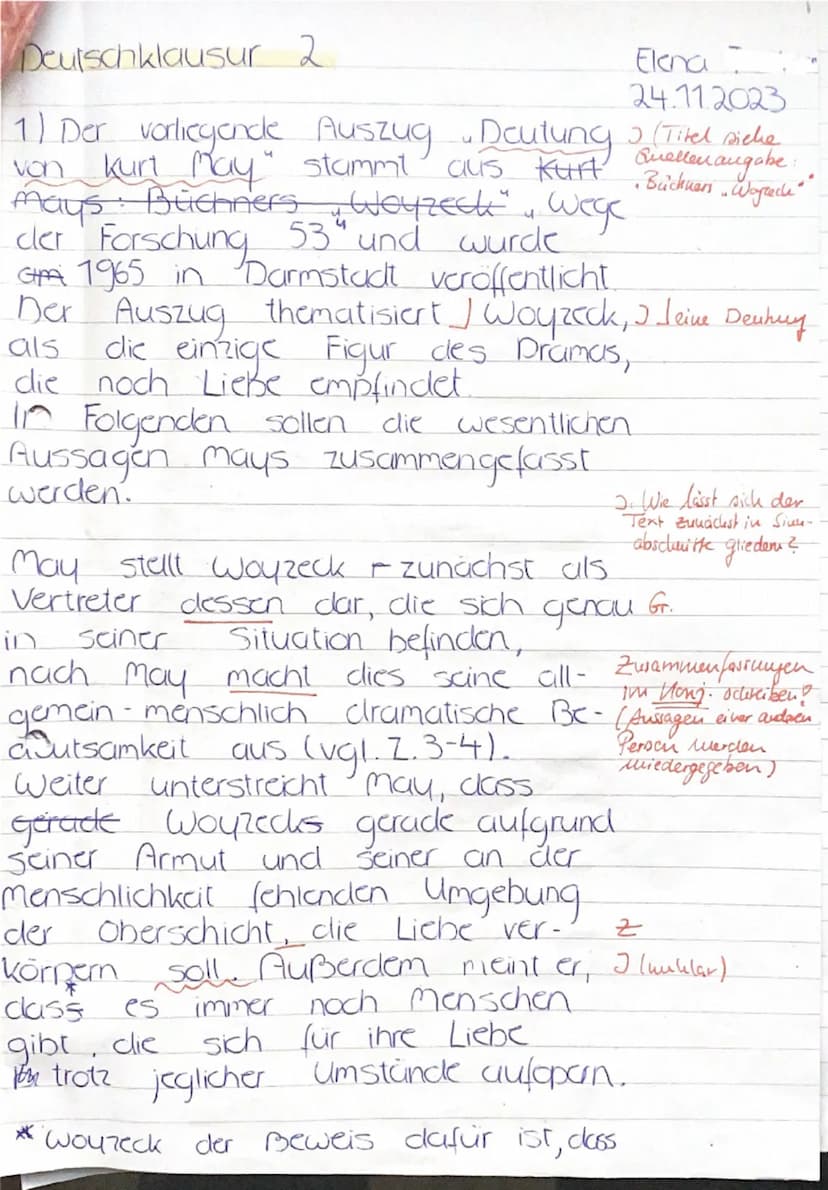 Deutschklausur 2
Elena
24.11.2023
1) Der vorliegende Auszug „Deutung
von Kurt May" stammt aus Kurt
Mays: Büchners „Woyzeck" „Wege
der Forschung 53" und wurde
1965 in Darmstadt veröffentlicht.
Der Auszug thematisiert Woyzeck,
als die einzige Figur des Dramas,
die noch Liebe empfindet.
In Folgenden sollen die wesentlichen
Aussagen Mays zusammengefasst
werden.
May stellt Woyzeck zunächst als
Vertreter dessen dar, die sich genau
in seiner Situation befinden,
nach May macht dies seine all-
gemein-menschlich dramatische Be-
deutsamkeit aus (vgl. Z. 3-4).
Weiter unterstreicht May, dass
gerade Woyzecks gerade aufgrund
seiner Armut und seiner an der
Menschlichkeit fehlenden Umgebung
der Oberschicht, die Liebe ver-
körpern soll. Außerdem meint er,
dass* es immer noch Menschen
gibt, die sich für ihre Liebe
trotz jeglicher Umstände aufopern.
* Woyzeck der Beweis dafür ist, dass
J (Titel siehe
Quellenangabe:
„Büchners „Woyzeck""
J seine Deutung
J. Wie lässt sich der
Text zunächst in Sinn-
abschnitte gliedern?
Gr.
Zusammenfassungen
im Konj. schreiben!
(Aussagen einer anderen
Person werden
wiedergegeben)
Z
J (unklar)